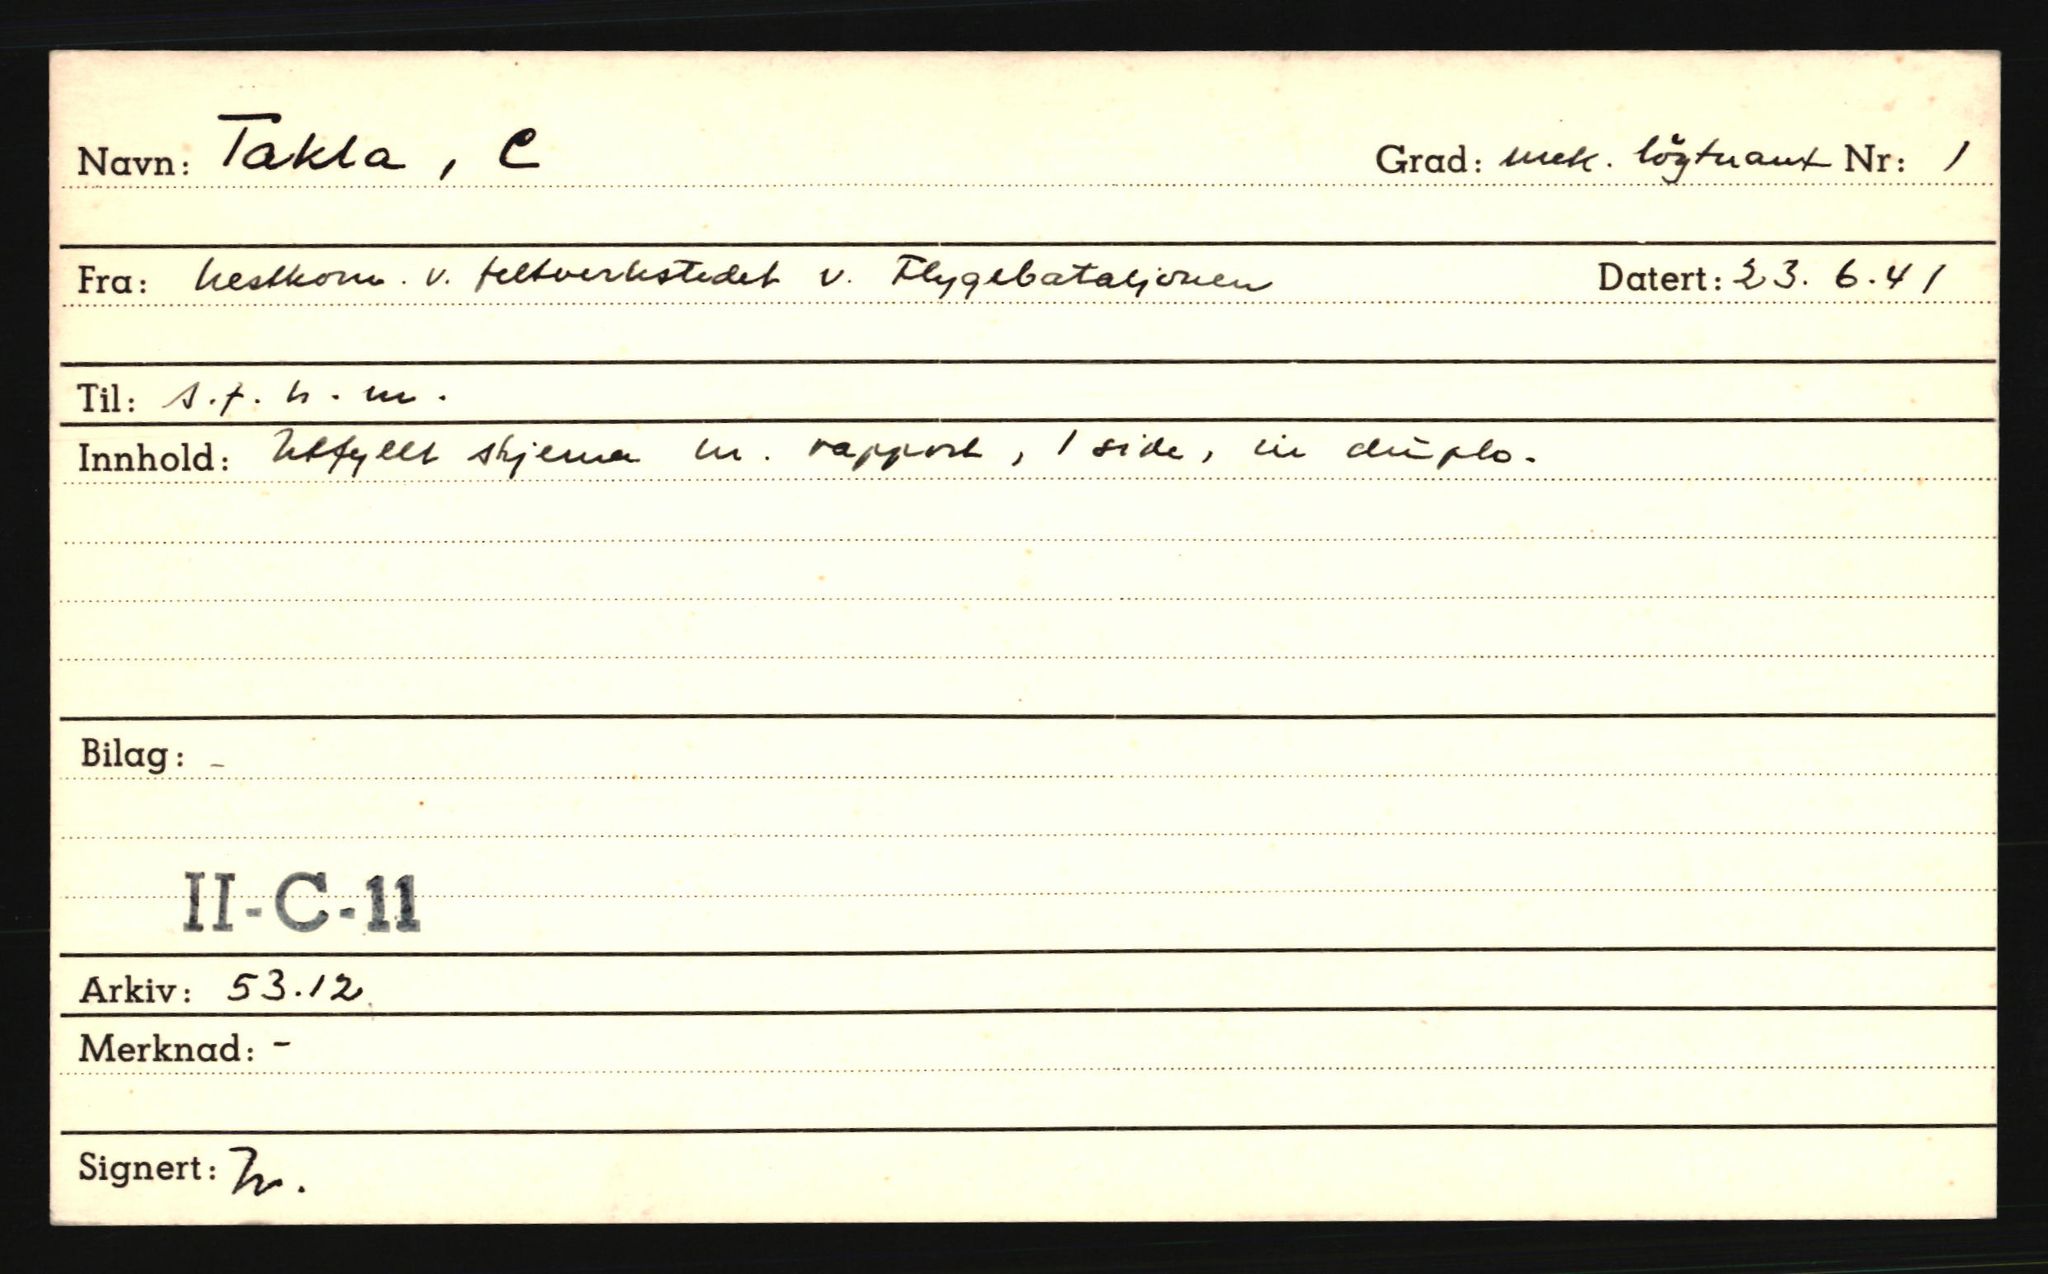 Navn: Takla, C Grad: mek. löytnant Nr: 1
Fra: nestkom. v. feltverkstedet v. Flygebataljonen Datert: 23.6.41
Til: s.f.h.m.
Innhold: Utfyllt skjema m. rapport, 1 side, in duplo.
Bilag: -
II-C-11
Arkiv: 53.12
Merknad: -
Signert: